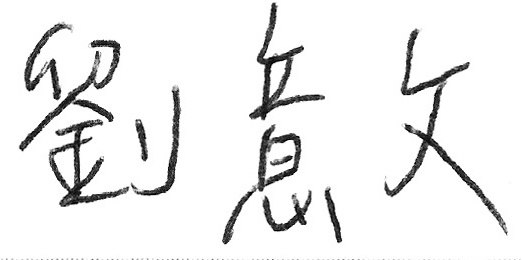 劉意文